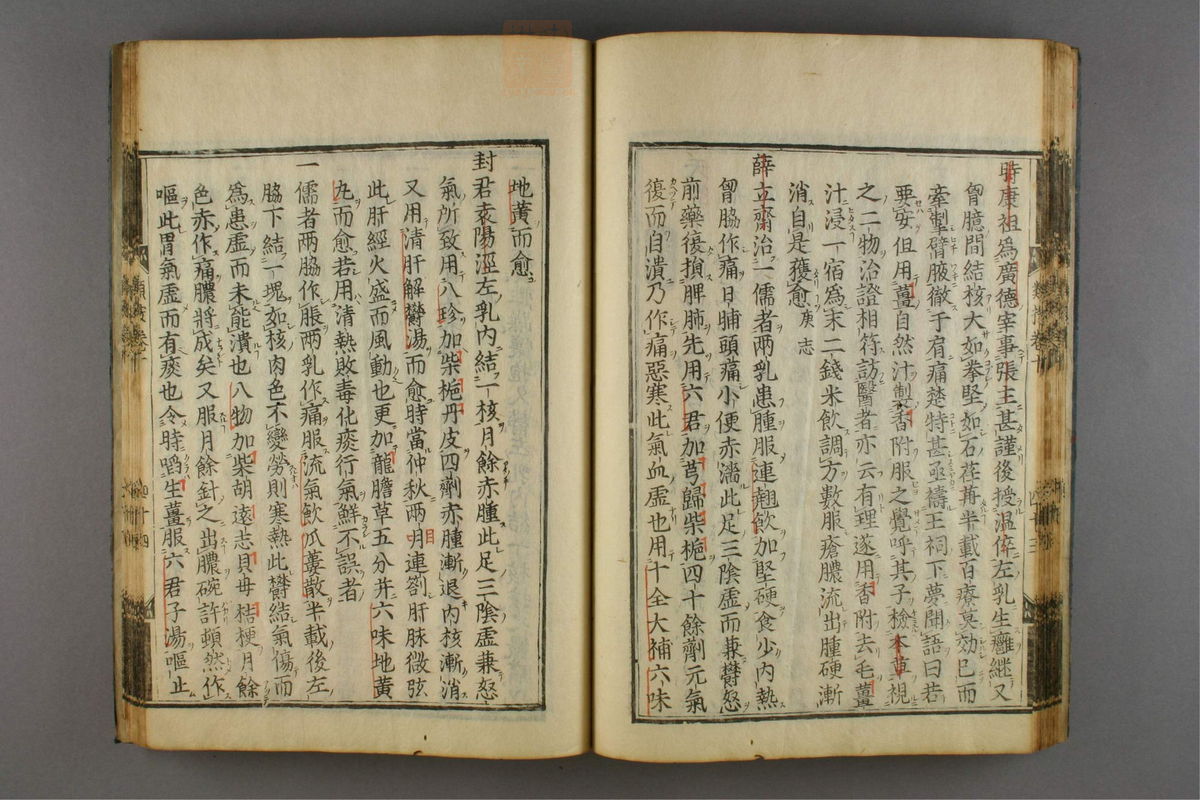 時康祖爲廣德宰事張王甚謹後授温倅左乳生癰繼又
曾臆間結核大如拳堅如石荏苒半載百療莫効已而
牽掣臂腋徹于肩痛楚特甚亟禱王祠下夢聞語曰若
要安但用薑自然汁製香附服之覺呼其子檢本草視
之二物治證相符訪醫者亦云有理遂用香附去毛薑
汁浸一宿爲末二錢米飲調方數服瘡膿流出腫硬漸
消自是獲愈 庚志
薛立齋治一儒者兩乳患腫服連翹飲加堅硬食少内熱
曾脇作痛日晡頭痛小便赤濇此足三陰虚而兼鬱怒
前藥復損脾肺先用六君加芎歸柴梔四十餘劑元氣
復而自潰乃作痛惡寒此氣血虚也用十全大補六味
地黄而愈
封君袁陽涇左乳内結一核月餘赤腫此足三陰虚兼怒
氣所致用八珍加柴梔丹皮四劑赤腫漸退内核漸消
又用清肝解鬱湯而愈時當仲秋兩目連劄肝脉微弦
此肝經火盛而風動也更加龍膽草五分并六味地黄
丸而愈若用清熱敗毒化痰行氣鮮不誤者
一儒者兩脇作脹兩乳作痛服流氣飲瓜蔞散半載後左
脇下結一塊如核肉色不變勞則寒熱此鬱結氣傷而
爲患虚而未能潰也八物加柴胡遠志貝母桔梗月餘
色赤作痛膿將成矣又服月餘針之出膿碗許頓然作
嘔此胃氣虚而有痰也令時嚼生薑服六君子湯嘔止